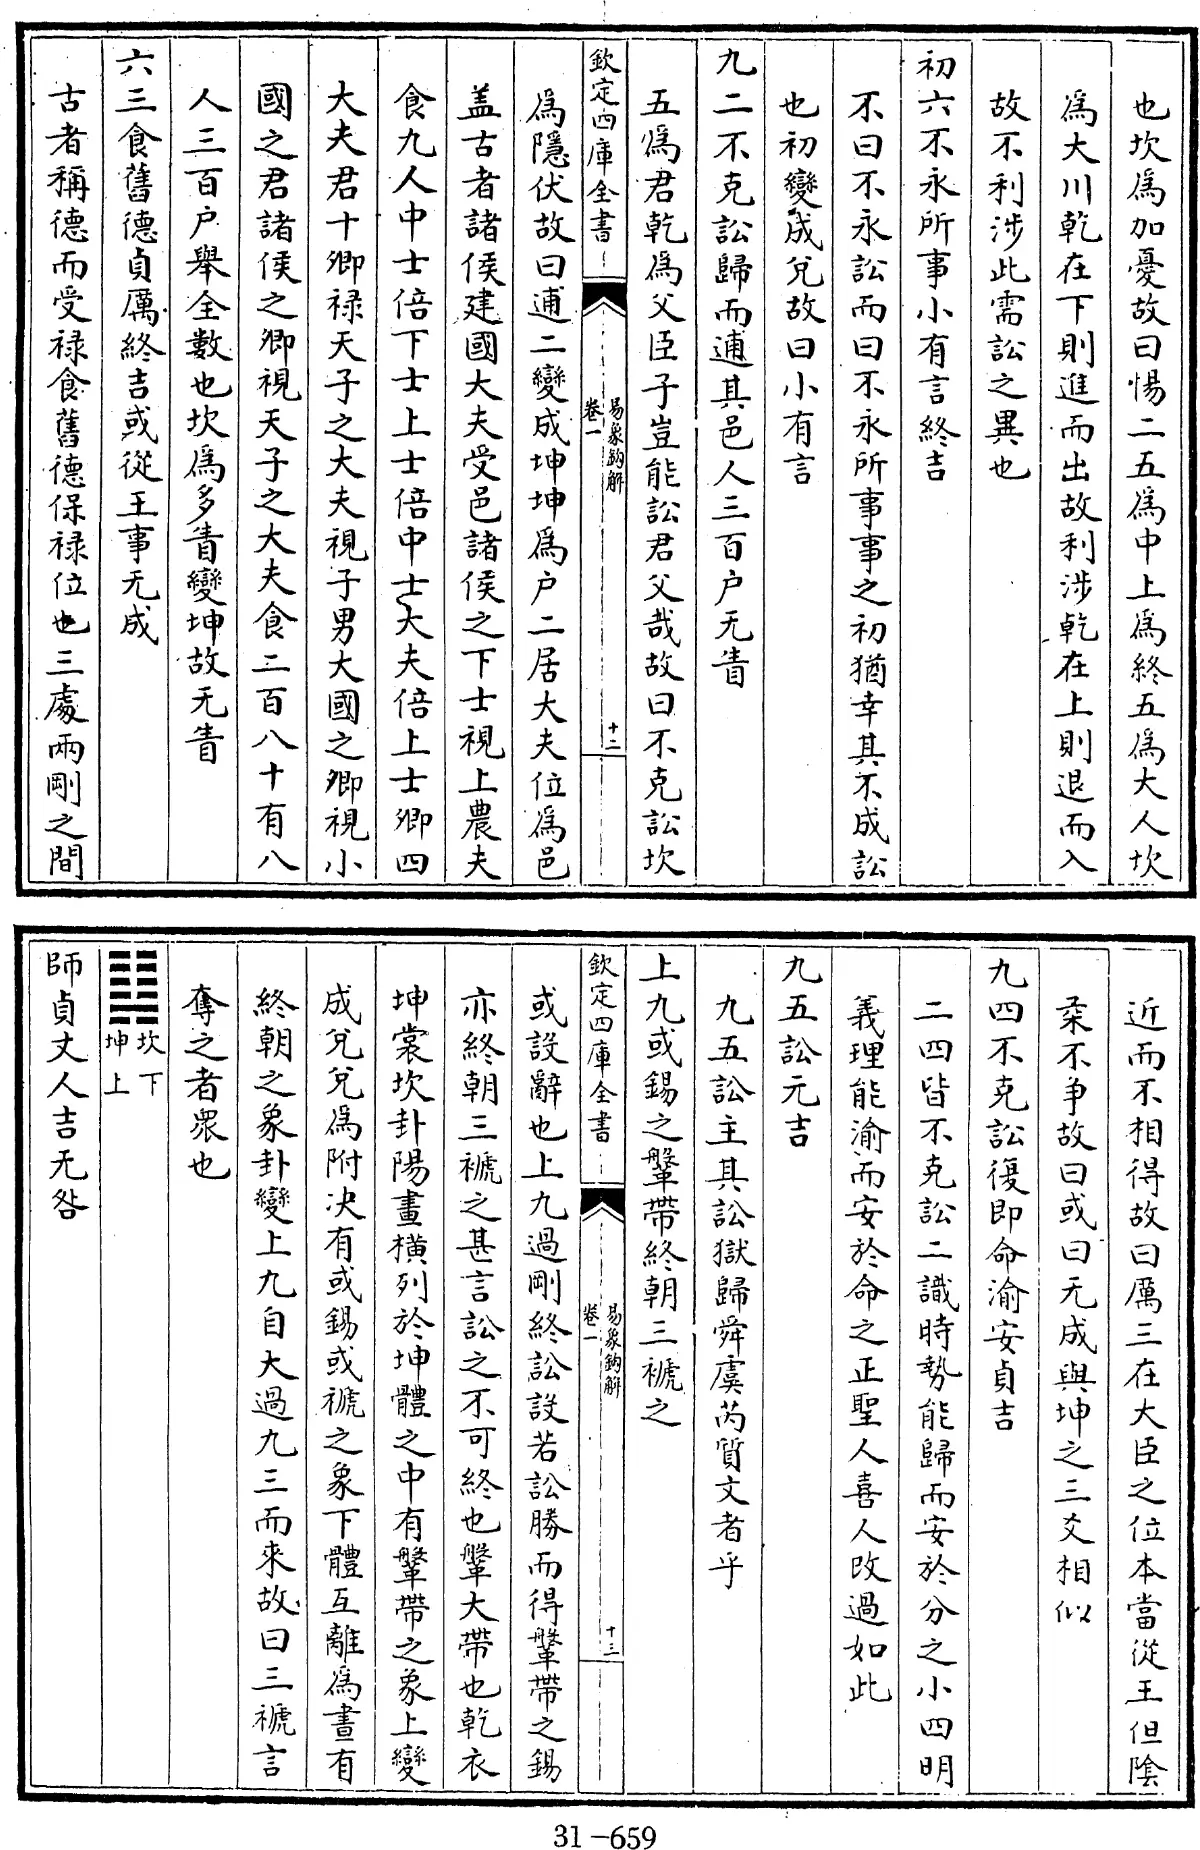 也坎爲加憂故曰惕二五爲中上爲終五爲大人坎
爲大川乾在下則進而出故利涉乾在上則退而入
故不利涉此需訟之異也
初六不永所事小有言終吉
不曰不永訟而曰不永所事事之初猶幸其不成訟
也初變成兌故曰小有言
九二不克訟歸而逋其邑人三百户无眚
五爲君乾爲父臣子豈能訟君父哉故曰不克訟坎
欽定四庫全書
易象鈎解
卷一
十二
爲隱伏故曰逋二變成坤坤爲户二居大夫位爲邑
盖古者諸侯建國大夫受邑諸侯之下士視上農夫
食九人中士倍下士上士倍中士大夫倍上士卿四
大夫君十卿禄天子之大夫視子男大國之卿視小
國之君諸侯之卿視天子之大夫食二百八十有八
人三百户舉全數也坎爲多眚變坤故无眚
六三食舊德貞厲終吉或從王事无成
古者稱德而受禄食舊德保禄位也三處兩剛之間
近而不相得故曰厲三在大臣之位本當從王但陰
柔不争故曰或曰无成與坤之三爻相似
九四不克訟復即命渝安貞吉
二四皆不克訟二識時勢能歸而安於分之小四明
義理能渝而安於命之正聖人喜人改過如此
九五訟元吉
九五訟主其訟獄歸舜虞芮質文者乎
上九或錫之鞶帶終朝三褫之
欽定四庫全書
易象鈎解
卷一
十三
或設辭也上九過剛終訟設若訟勝而得鞶帶之錫
亦終朝三褫之甚言訟之不可終也鞶大帶也乾衣
坤裳坎卦陽畫横列於坤體之中有鞶帶之象上變
成兌兌爲附决有或錫或褫之象下體互離爲晝有
終朝之象卦變上九自大過九三而來故曰三褫言
奪之者衆也
坎下
坤上
師貞丈人吉无咎
31-659